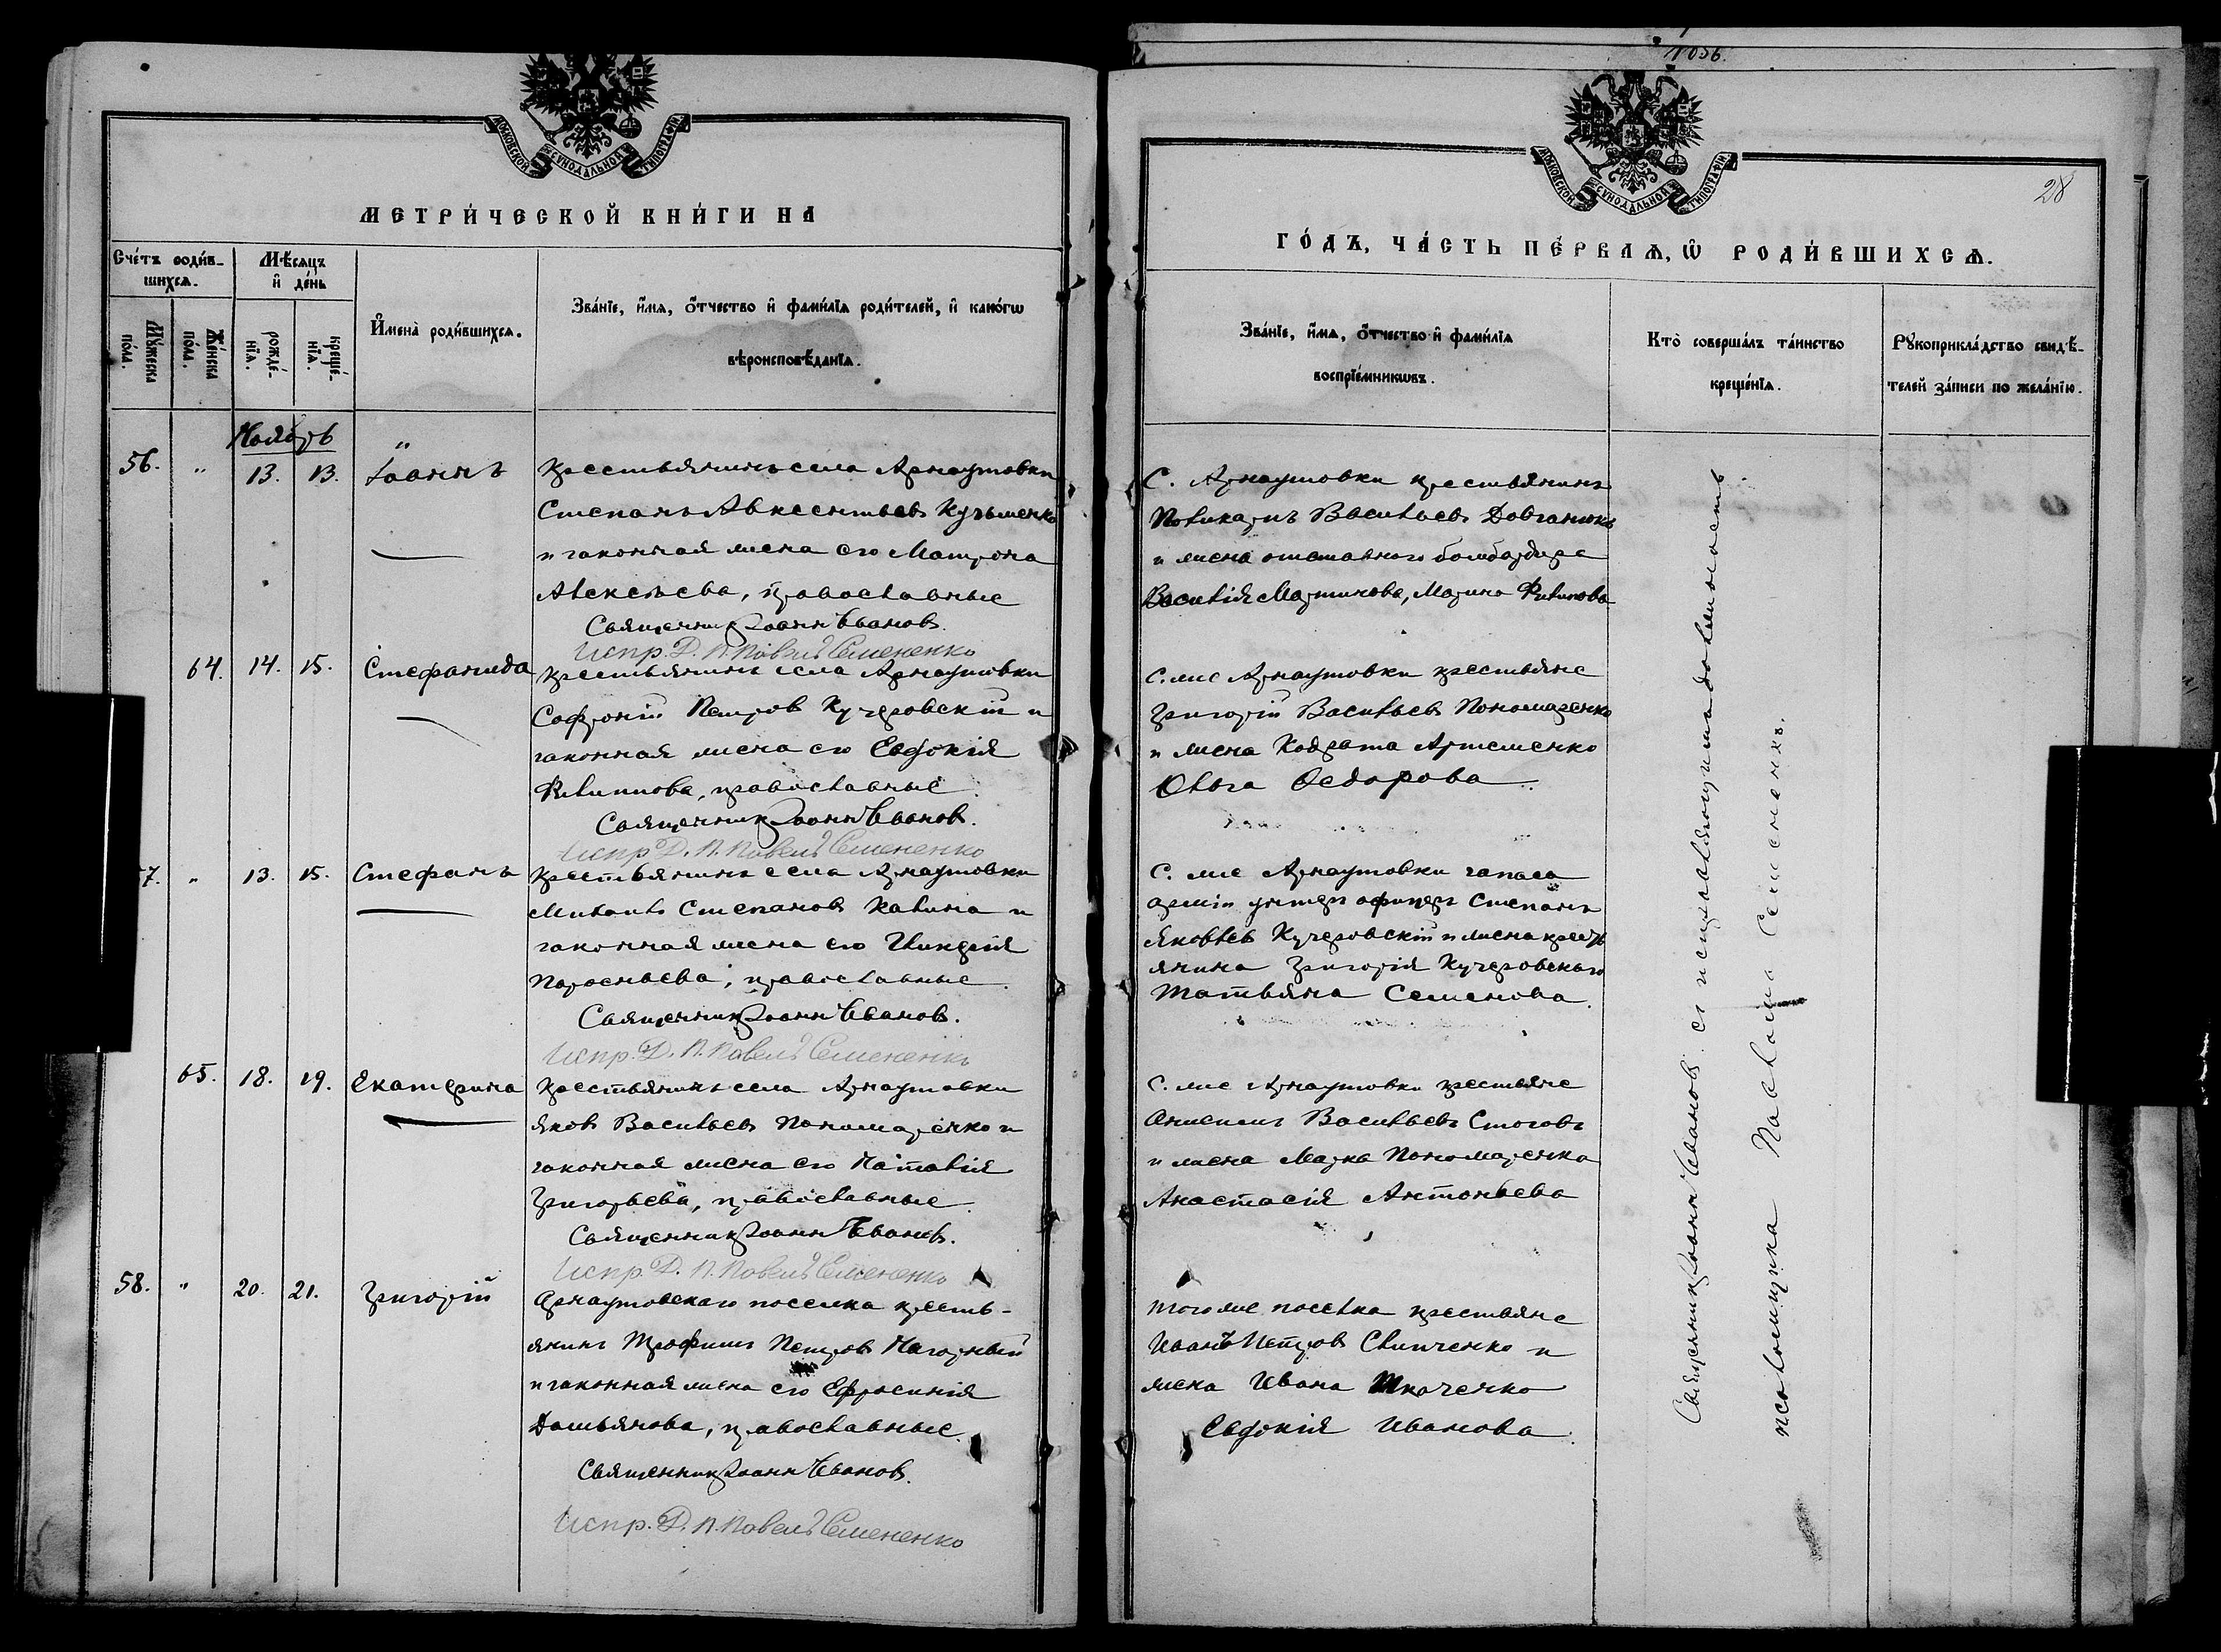 МОСКОВСКОЙ СѴНОДАЛЬНОЙ ТИПОГРАФІИ
МЕТРИ́ЧЕСКОЙ КНИ́ГИ НА
Сче́тъ роди́в-
шихсѧ.
Мѣ́сѧцъ
и҆ де́нь
И҆мена̀ роди́вшихсѧ.
Зва́нїе, и҆́мѧ, ѻ҆́тчество и҆ фами́лїѧ роди́телей, и҆ како́гѡ
вѣроисповѣ́данїѧ.
Мꙋ́жеска
по́ла.
Же́нска
по́ла.
рожде́-
нїѧ.
креще́-
нїѧ.
Ноябрь
56. " 13. 13. Іоаннъ
Крестьянинъ села Арнаутовки
Степанъ Авксентьевъ Кузьменко
и законная жена его Матрона
Алексѣева, православные
Священникъ Іоаннъ Ивановъ.
Испр. Д. П. Павелъ Семененко
64. 14. 15. Стефанида
Крестьянинъ села Арнаутовки
Софроній Петровъ Кучеровскій и
законная жена его Евдокія
Филиппова, православные.
Священникъ Іоаннъ Ивановъ.
Испр. Д. П. Павелъ Семененко
57. " 13. 15. Стефанъ
Крестьянинъ села Арнаутовки
Михаилъ Степановъ Калина и
законная жена его Гликерія
православные.
Священникъ Іоаннъ Ивановъ.
Испр. Д. П. Павелъ Семененко
65. 18. 19. Екатерина
Крестьянинъ села Арнаутовки
Яковъ Васильевъ Пономаренко и
законная жена его Наталія
Григорьева, православные.
Священникъ Іоаннъ Ивановъ.
Испр. Д. П. Павелъ Семененко
58. " 20. 21. Григорій
Арнаутовскаго поселка кресть-
янинъ Трофимъ Петровъ Нагорный
и законная жена его Ефросинія
Демьянова, православные.
Священникъ Іоаннъ Ивановъ.
Испр. Д. П. Павелъ Семененко
1056.
28
МОСКОВСКОЙ СѴНОДАЛЬНОЙ ТИПОГРАФІИ
ГО́ДЪ, ЧА́СТЬ ПЕ́РВАѦ, Ѽ РОДИ́ВШИХСѦ.
Зва́нїе, и҆́мѧ, ѻ҆́тчество и҆ фами́лїѧ
воспрїе́мникѡвъ.
Кто̀ соверша́лъ та́инство
креще́нїѧ.
Рꙋкоприкла́дство свидѣ́-
телей за́писи по жела́нїю.
С. Арнаутовки крестьянинъ
Поликарпъ Васильевъ Довганюкъ
и жена отставного бомбардира
Василія Мартинова, Марина Филипова
С. же Арнаутовки крестьяне
Григорій Васильевъ Пономаренко
и жена Кодрата Артеменко
Ольга Федорова.
С. же Арнаутовки запаса
арміи унтеръ офицеръ Степанъ
Яковлевъ Кучеровскій и жена кресть
янина Григорія Кучеровскаго
Татьяна Семенова.
С. же Арнаутовки крестьяне
Васильевъ Стоговъ
и жена Марка Пономаренка
Анастасія Антоньева
Того же поселка крестьяне
Иванъ Петровъ Слипченко и
жена Ивана Ткаченко
Евдокія Иванова.
Священникъ Іоаннъ Ивановъ съ исправляющимъ должность
псаломщика Павломъ Семененкъ.